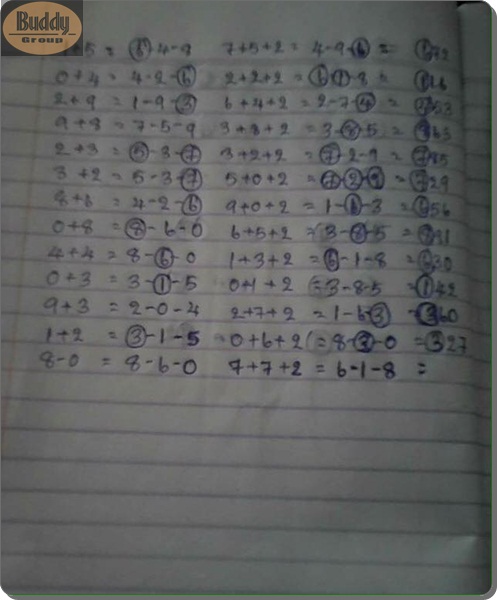 Buddy
Group
5 = 6-4-9 7+5+2 = 4-9-6 = 672
0+4 = 4-2-6 2+2+2 = 6-1-8 =
2+9 = 1-9-3 6+4+2 = 2-7-4 = 53
9+8 = 7-5-9 3+8+2 = 3-8-5 = 63
2+3 = 5-8-7 3+2+2 = 7-2-9 = 785
3+2 = 5-3-7 5+0+2 = 7-2-9 = 729
8+8 = 4-2-6 9+0+2 = 1-6-3 = 656
0+8 = 8-6-0 6+5+2 = 3-8-5 = 891
4+4 = 8-6-0 1+3+2 = 6-1-8 = 630
0+3 = 3-1-5 0+1+2 = 3-8-5 = 142
9+3 = 2-0-4 2+7+2 = 1-6-3 = 360
1+2 = 3-1-5 0+6+2 = 8-3-0 = 327
8-0 = 8-6-0 7+7+2 = 6-1-8 =